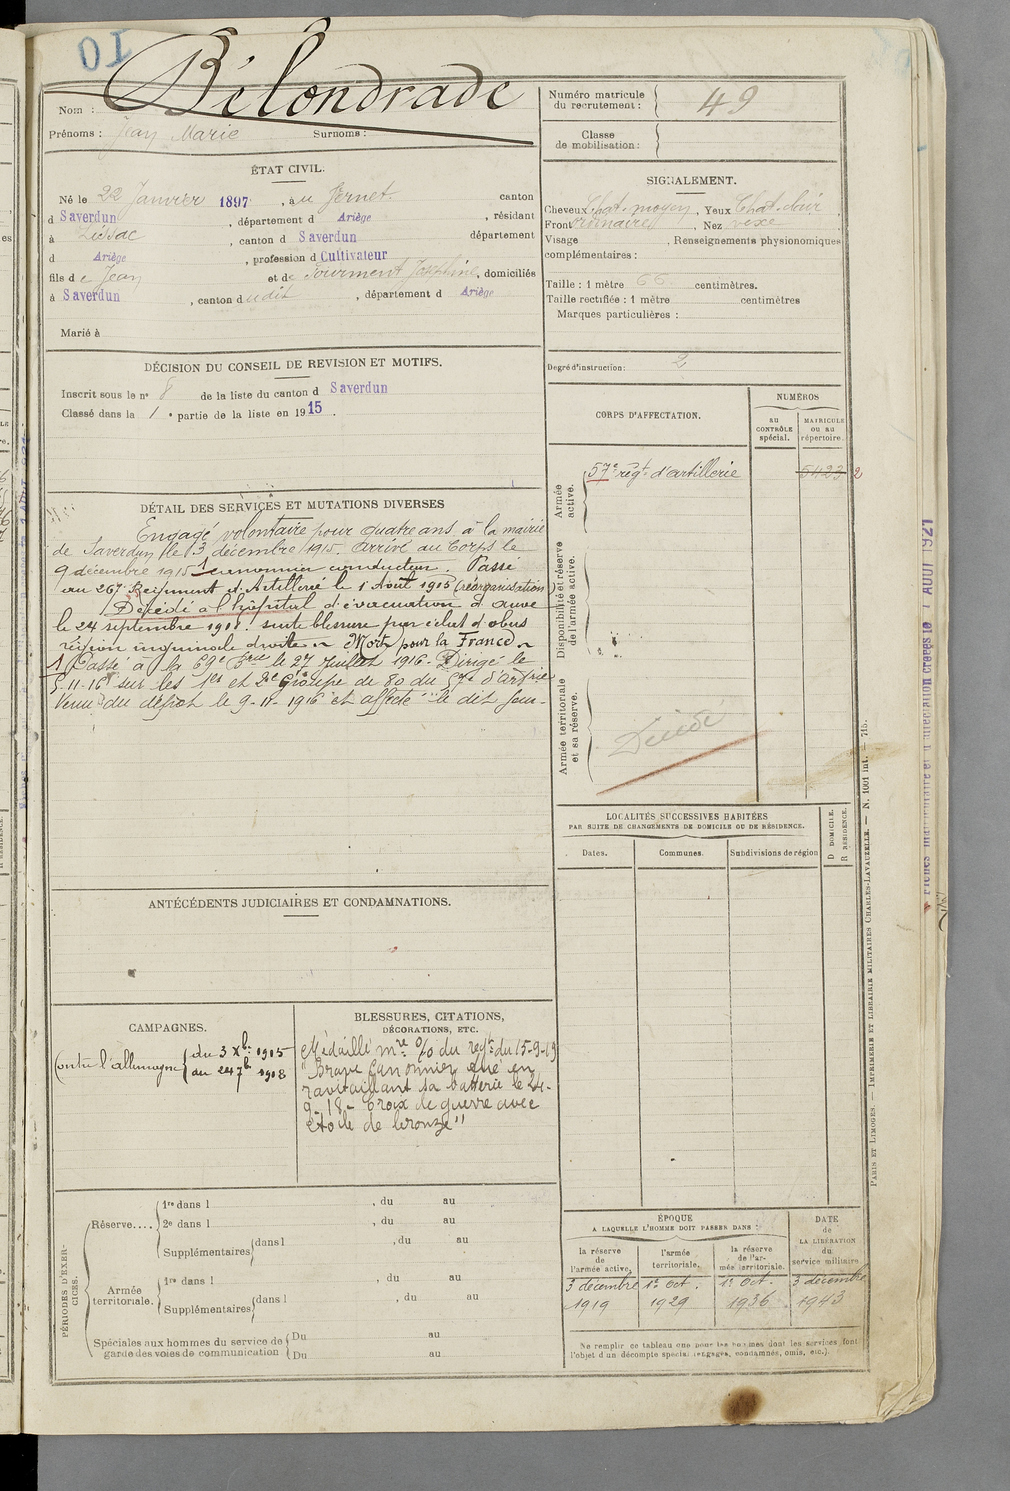 10
Bélondrade
Nom :
Prénoms : Jean Marie Surnoms :
Numéro matricule du recrutement : 49
Classe de mobilisation :
ÉTAT CIVIL.
Né le 22 Janvier 1897, à u Vernet canton
d Saverdun, département d Ariège, résidant
à Lissac, canton d Saverdun département
d Ariège, profession d Cultivateur
fils de Jean et de Tourment Joséphine, domiciliés
à Saverdun, canton dudit, département d Ariège
Marié à
SIGNALEMENT.
Cheveux chat. moyen, Yeux Chat. clair,
Front ordinaire, Nez vexe
Visage , Renseignements physionomiques
complémentaires :
Taille : 1 mètre 66 centimètres.
Taille rectifiée : 1 mètre centimètres
Marques particulières :
Degré d'instruction : 2
DÉCISION DU CONSEIL DE REVISION ET MOTIFS.
Inscrit sous le nº 8 de la liste du canton d Saverdun
Classé dans la 1 e partie de la liste en 1915.
DÉTAIL DES SERVICES ET MUTATIONS DIVERSES
Engagé volontaire pour quatre ans à la mairie
de Saverdun le 3 décembre 1915. Arrivé au Corps le
9 décembre 1915 1 canonnier conducteur. Passé
au 267e Régiment d'Artillerie le 1 Août 1918 (réorganisation)
Décédé à l'hôpital d'évacuation d'Auve
le 24 septembre 1918. suite blessure par éclat d'obus
région inguinale droite ~ Mort pour la France ~
1 Passé à la 69e Brie le 27 Juillet 1916. Dirigé le
5-11-16 sur les 1er et 2e Groupe de 80 du 57e d'artrie
Venu du dépôt le 9-11-1916 et affecté le dit jour
CORPS D'AFFECTATION.
NUMÉROS
au CONTRÔLE spécial.
MATRICULE ou au répertoire.
Armée active.
57e régt d'artillerie 5423 2
Disponibilité et réserve de l'armée active.
Armée territoriale et sa réserve.
Décédé
LOCALITÉS SUCCESSIVES HABITÉES
PAR SUITE DE CHANGEMENTS DE DOMICILE OU DE RÉSIDENCE.
Dates. Communes. Subdivisions de région
D DOMICILE.
R RÉSIDENCE.
ANTÉCÉDENTS JUDICIAIRES ET CONDAMNATIONS.
CAMPAGNES.
Contre l'allemagne du 3 Xbre 1915
au 24 7bre 1918
BLESSURES, CITATIONS,
DÉCORATIONS, ETC.
Médaillé mre % du regt du 15-9-19
"Brave Canonnier tué en
ravitaillant sa batterie le 24-
9-18- Croix de guerre avec
étoile de bronze"
PÉRIODES D'EXERCICES.
Réserve....
1re dans l , du au
2e dans l , du au
Supplémentaires dans l , du au
Armée territoriale.
1re dans l , du au
Supplémentaires dans l , du au
Spéciales aux hommes du service de
garde des voies de communication
Du au
Du au
ÉPOQUE
A LAQUELLE L'HOMME DOIT PASSER DANS :
la réserve de l'armée active.
l'armée territoriale.
la réserve de l'armée territoriale.
DATE de LA LIBÉRATION du service militaire
3 décembre 1er Oct. 1er Oct. 3 décembre
1919 1929 1936 1943
Ne remplir ce tableau que pour les hommes dont les services font
l'objet d'un décompte spécial (engagés, condamnés, omis, etc.).
PARIS ET LIMOGES. — IMPRIMERIE ET LIBRAIRIE MILITAIRES CHARLES-LAVAUZELLE. — N. 1001 int. — 715.